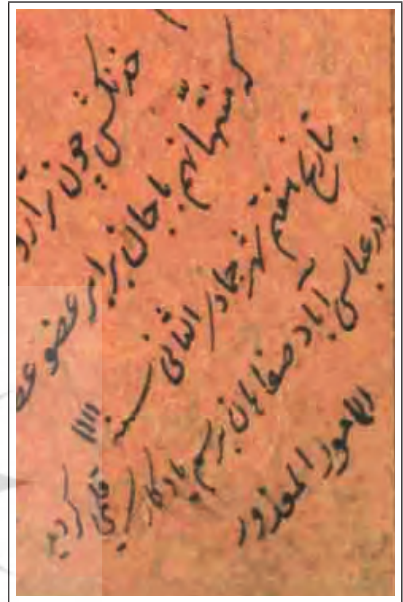 خدنگش چون ترازو
که استخوانم با جان برابر عضو عضو
بتاریخ هفتم شهر جمادی الثانی سنه ۱۱۱۱
در عباس آباد صفاهان برسم یادگاری قلمی گردید
المأمور المعذور